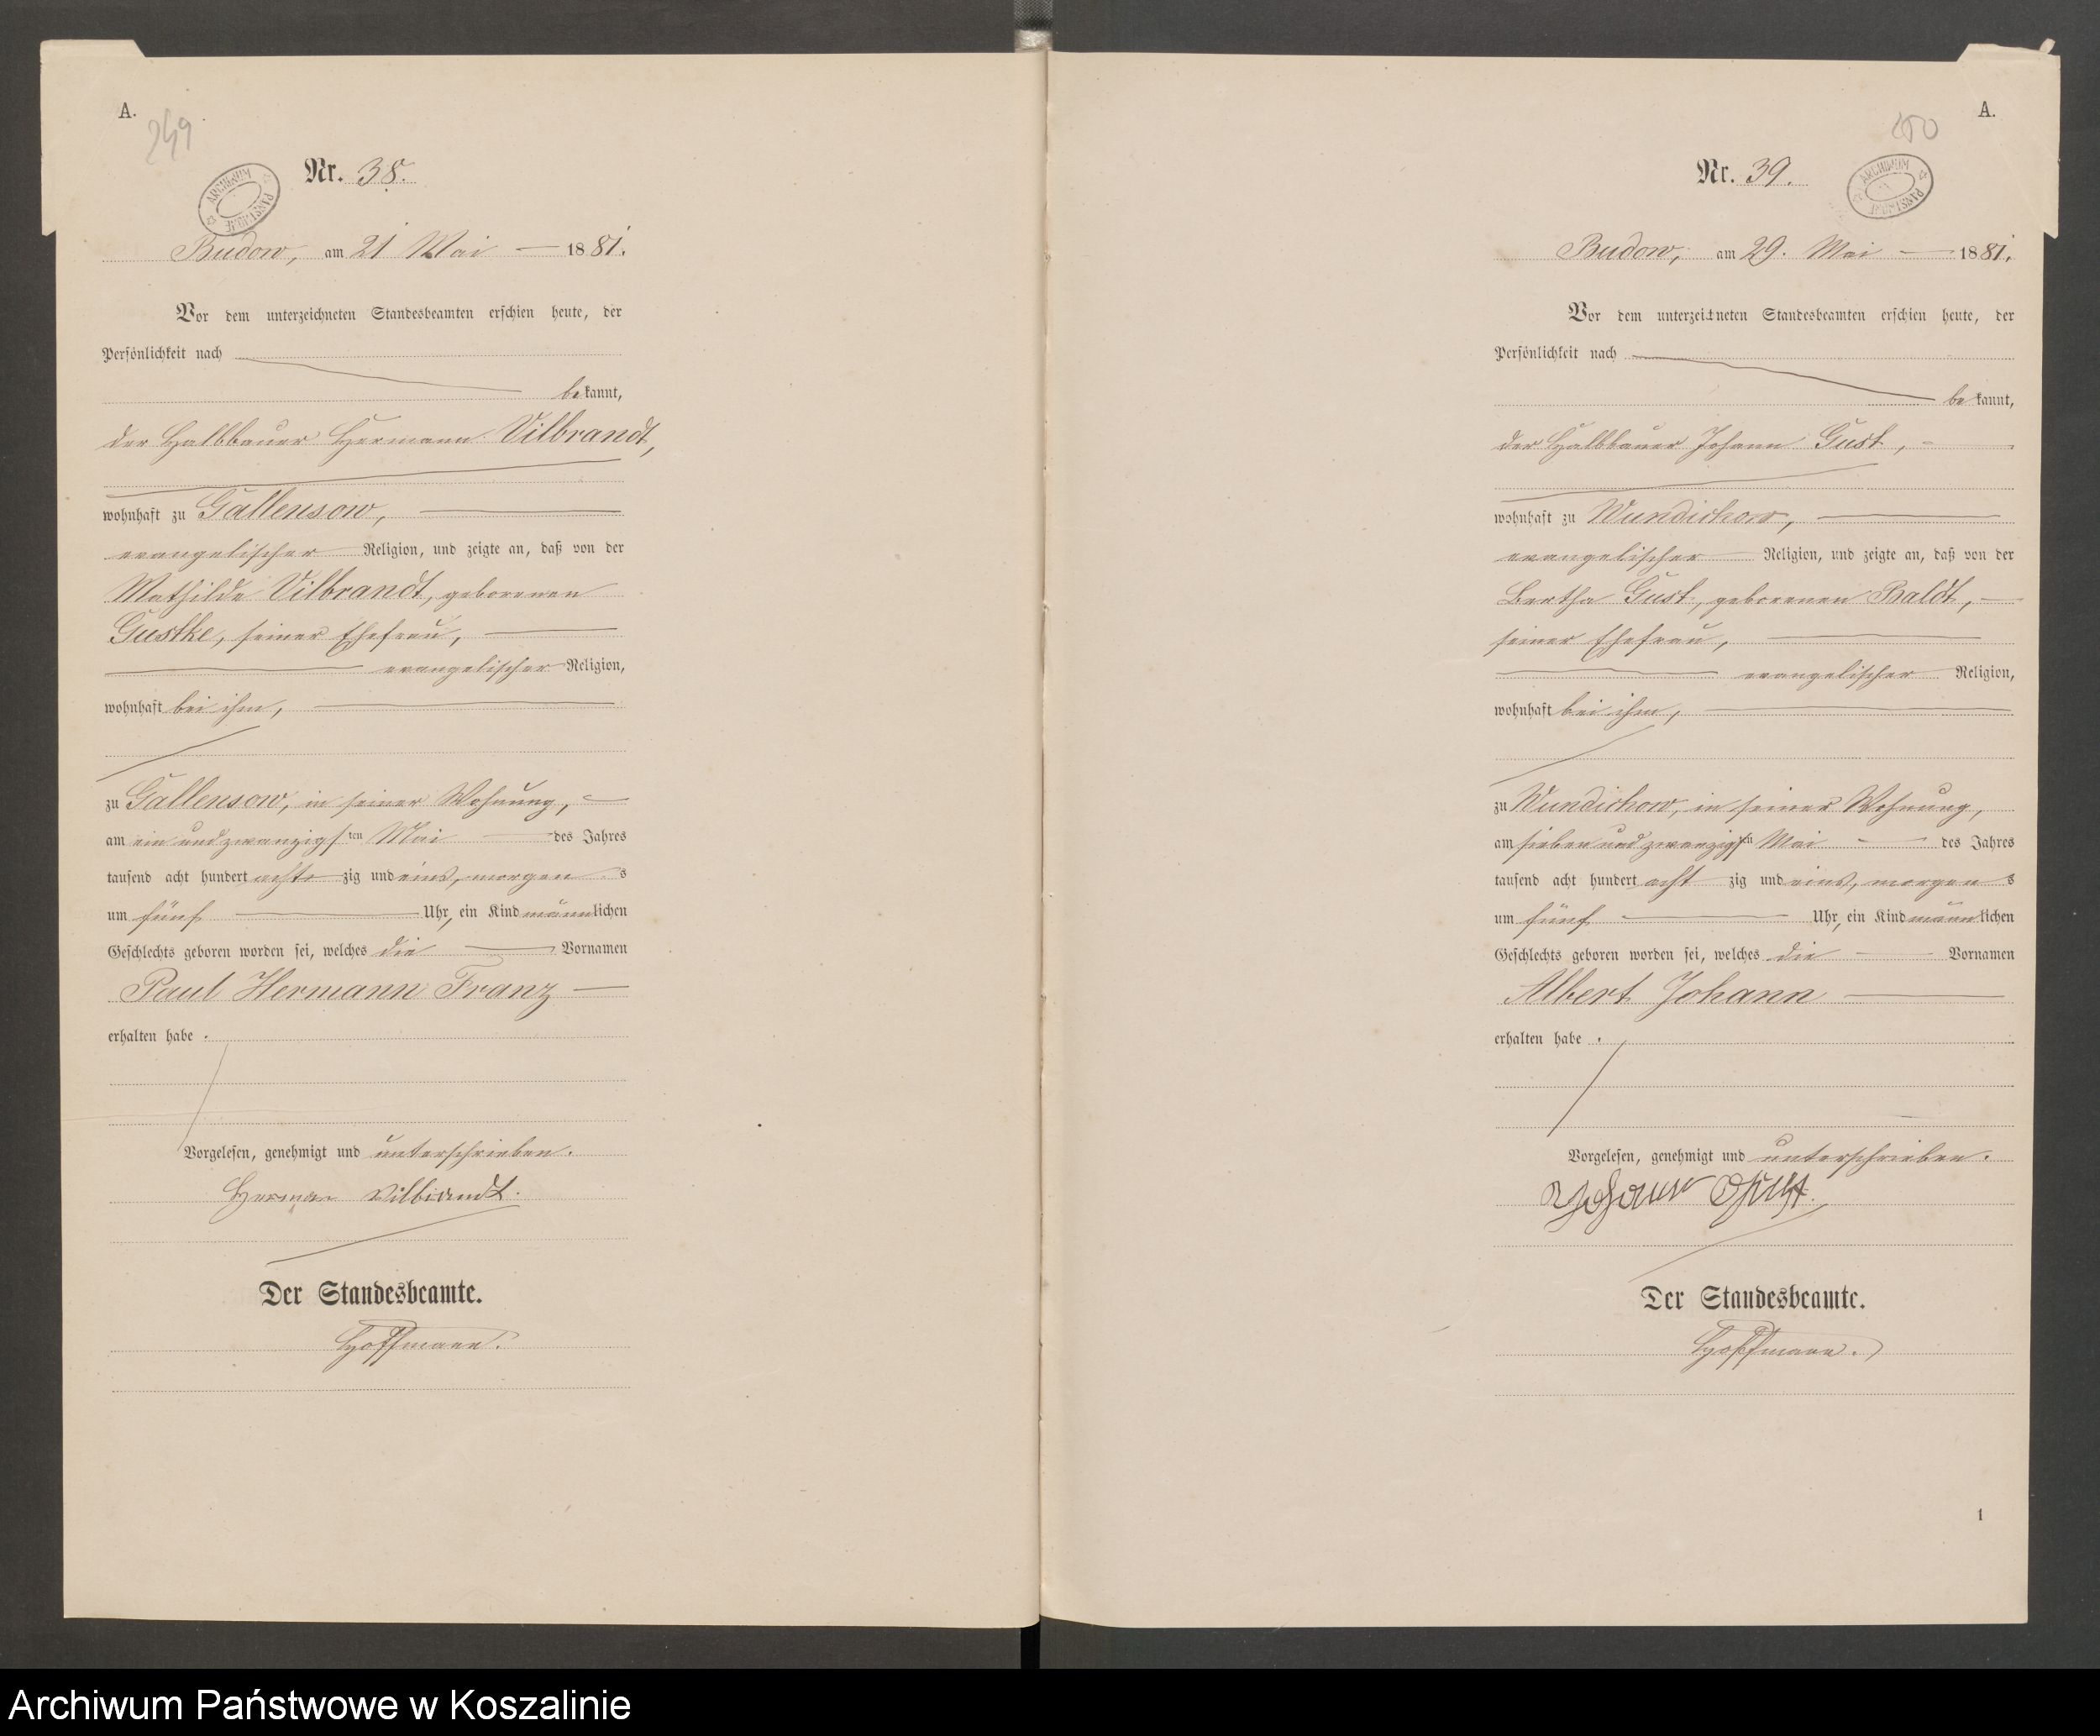 A.
249
Nr. 38.
ARCHIWUM PAŃSTWOWE
Budow, am 21 Mai 1881.
Vor dem unterzeichneten Standesbeamten erschien heute, der
Persönlichkeit nach
bekannt,
der Halbbauer Hermann Vilbrandt,
wohnhaft zu Gallensow,
evangelischer Religion, und zeigte an, daß von der
Mathilde Vilbrandt, geborenen
Gustke, seiner Ehefrau,
evangelischer Religion,
wohnhaft bei ihm,
zu Gallensow, in seiner Wohnung,
am ein und zwanzigsten Mai des Jahres
tausend acht hundert achtzig und eins, morgens
um fünf Uhr, ein Kind männlichen
Geschlechts geboren worden sei, welches die Vornamen
Paul Hermann Franz
erhalten habe.
Vorgelesen, genehmigt und unterschrieben.
Herman Vilbrandt.
Der Standesbeamte.
Hoffmann.
A.
250
Nr. 39.
ARCHIWUM PAŃSTWOWE
Budow, am 29. Mai 1881.
Vor dem unterzeichneten Standesbeamten erschien heute, der
Persönlichkeit nach
bekannt,
der Halbbauer Johann Gust,
wohnhaft zu Wundichow,
evangelischer Religion, und zeigte an, daß von der
Bertha Gust, geborenen Baldt,
seiner Ehefrau,
evangelischer Religion,
wohnhaft bei ihm,
zu Wundichow, in seiner Wohnung,
am sieben und zwanzigsten Mai des Jahres
tausend acht hundert achtzig und eins, morgens
um fünf Uhr, ein Kind männlichen
Geschlechts geboren worden sei, welches die Vornamen
Albert Johann
erhalten habe.
Vorgelesen, genehmigt und unterschrieben.
Johann Gust.
Der Standesbeamte.
Hoffmann.
1
Archiwum Państwowe w Koszalinie